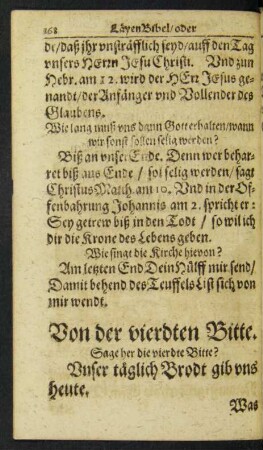 268 LäyenBibel/oder
de/daß jhr vnsträfflich seyd/auff den Tag
vnsers HErrn JEsu Christi. Vnd zun
Hebr. am 12. wird der HErr JEsus ge-
nandt/der Anfänger vnd Vollender des
Glaubens.
Wie lang muß vns dann Gott erhalten/wann
wir sonst sollen selig werden?
Biß an vnser Ende. Denn wer behar-
ret biß ans Ende / sol selig werden/sagt
Christus Matth. am 10. Vnd in der Of-
fenbahrung Johannis am 2. spricht er:
Sey getrew biß in den Todt / so wil ich
dir die Krone des Lebens geben.
Wie singt die Kirche hievon?
Am letzten End Dein Hülff mir send/
Damit behend des Teuffels List sich von
mir wendt.
Von der vierdten Bitte.
Sage her die vierdte Bitte?
Vnser täglich Brodt gib vns
heute.
Was